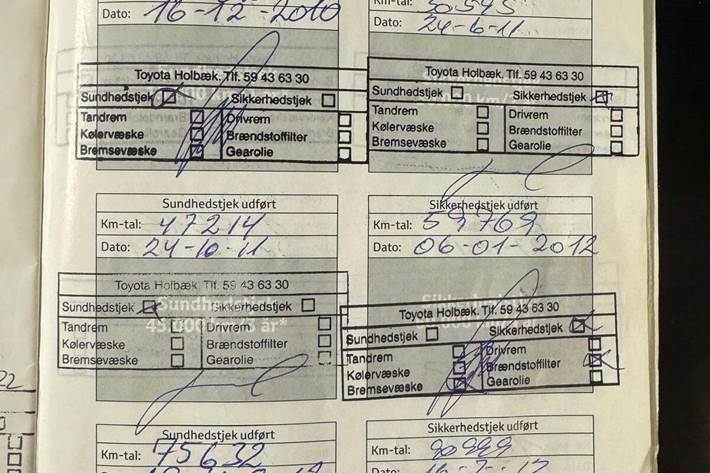 Dato: 16-12-2010
Km-tal: 30545
Dato: 24-6-11
Toyota Holbæk. Tlf. 59 43 63 30
Sundhedstjek Sikkerhedstjek
Tandrem Drivrem
Kølervæske Brændstoffilter
Bremsevæske Gearolie
Toyota Holbæk. Tlf. 59 43 63 30
Sundhedstjek Sikkerhedstjek
Tandrem Drivrem
Kølervæske Brændstoffilter
Bremsevæske Gearolie
Sundhedstjek udført
Km-tal: 47214
Dato: 24-10-11
Sikkerhedstjek udført
Km-tal: 59769
Dato: 06-01-2012
Toyota Holbæk. Tlf. 59 43 63 30
Sundhedstjek Sikkerhedstjek
Tandrem Drivrem
Kølervæske Brændstoffilter
Bremsevæske Gearolie
Toyota Holbæk. Tlf. 59 43 63 30
Sundhedstjek Sikkerhedstjek
Tandrem Drivrem
Kølervæske Brændstoffilter
Bremsevæske Gearolie
Sundhedstjek udført
Km-tal: 75632
Sikkerhedstjek udført
Km-tal: 90999